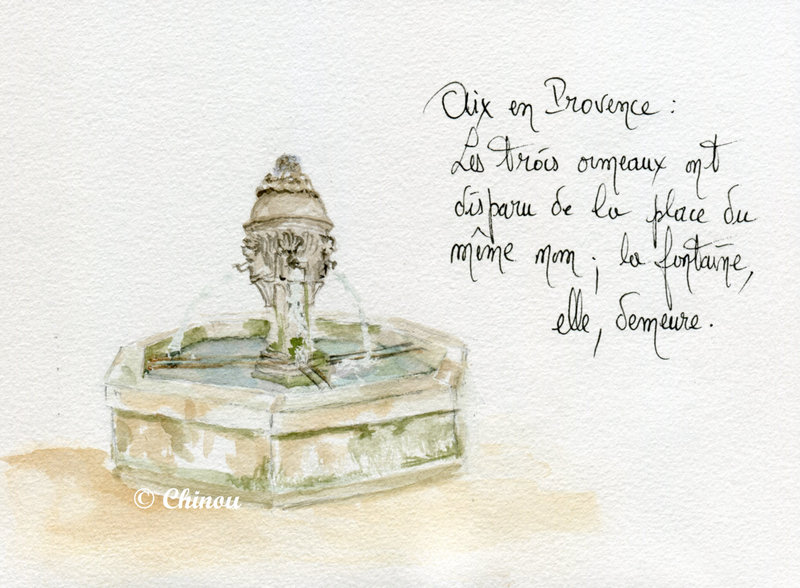 Aix en Provence :
Les trois ormeaux ont
disparu de la place du
même nom ; la fontaine,
elle, demeure.
© Chinou